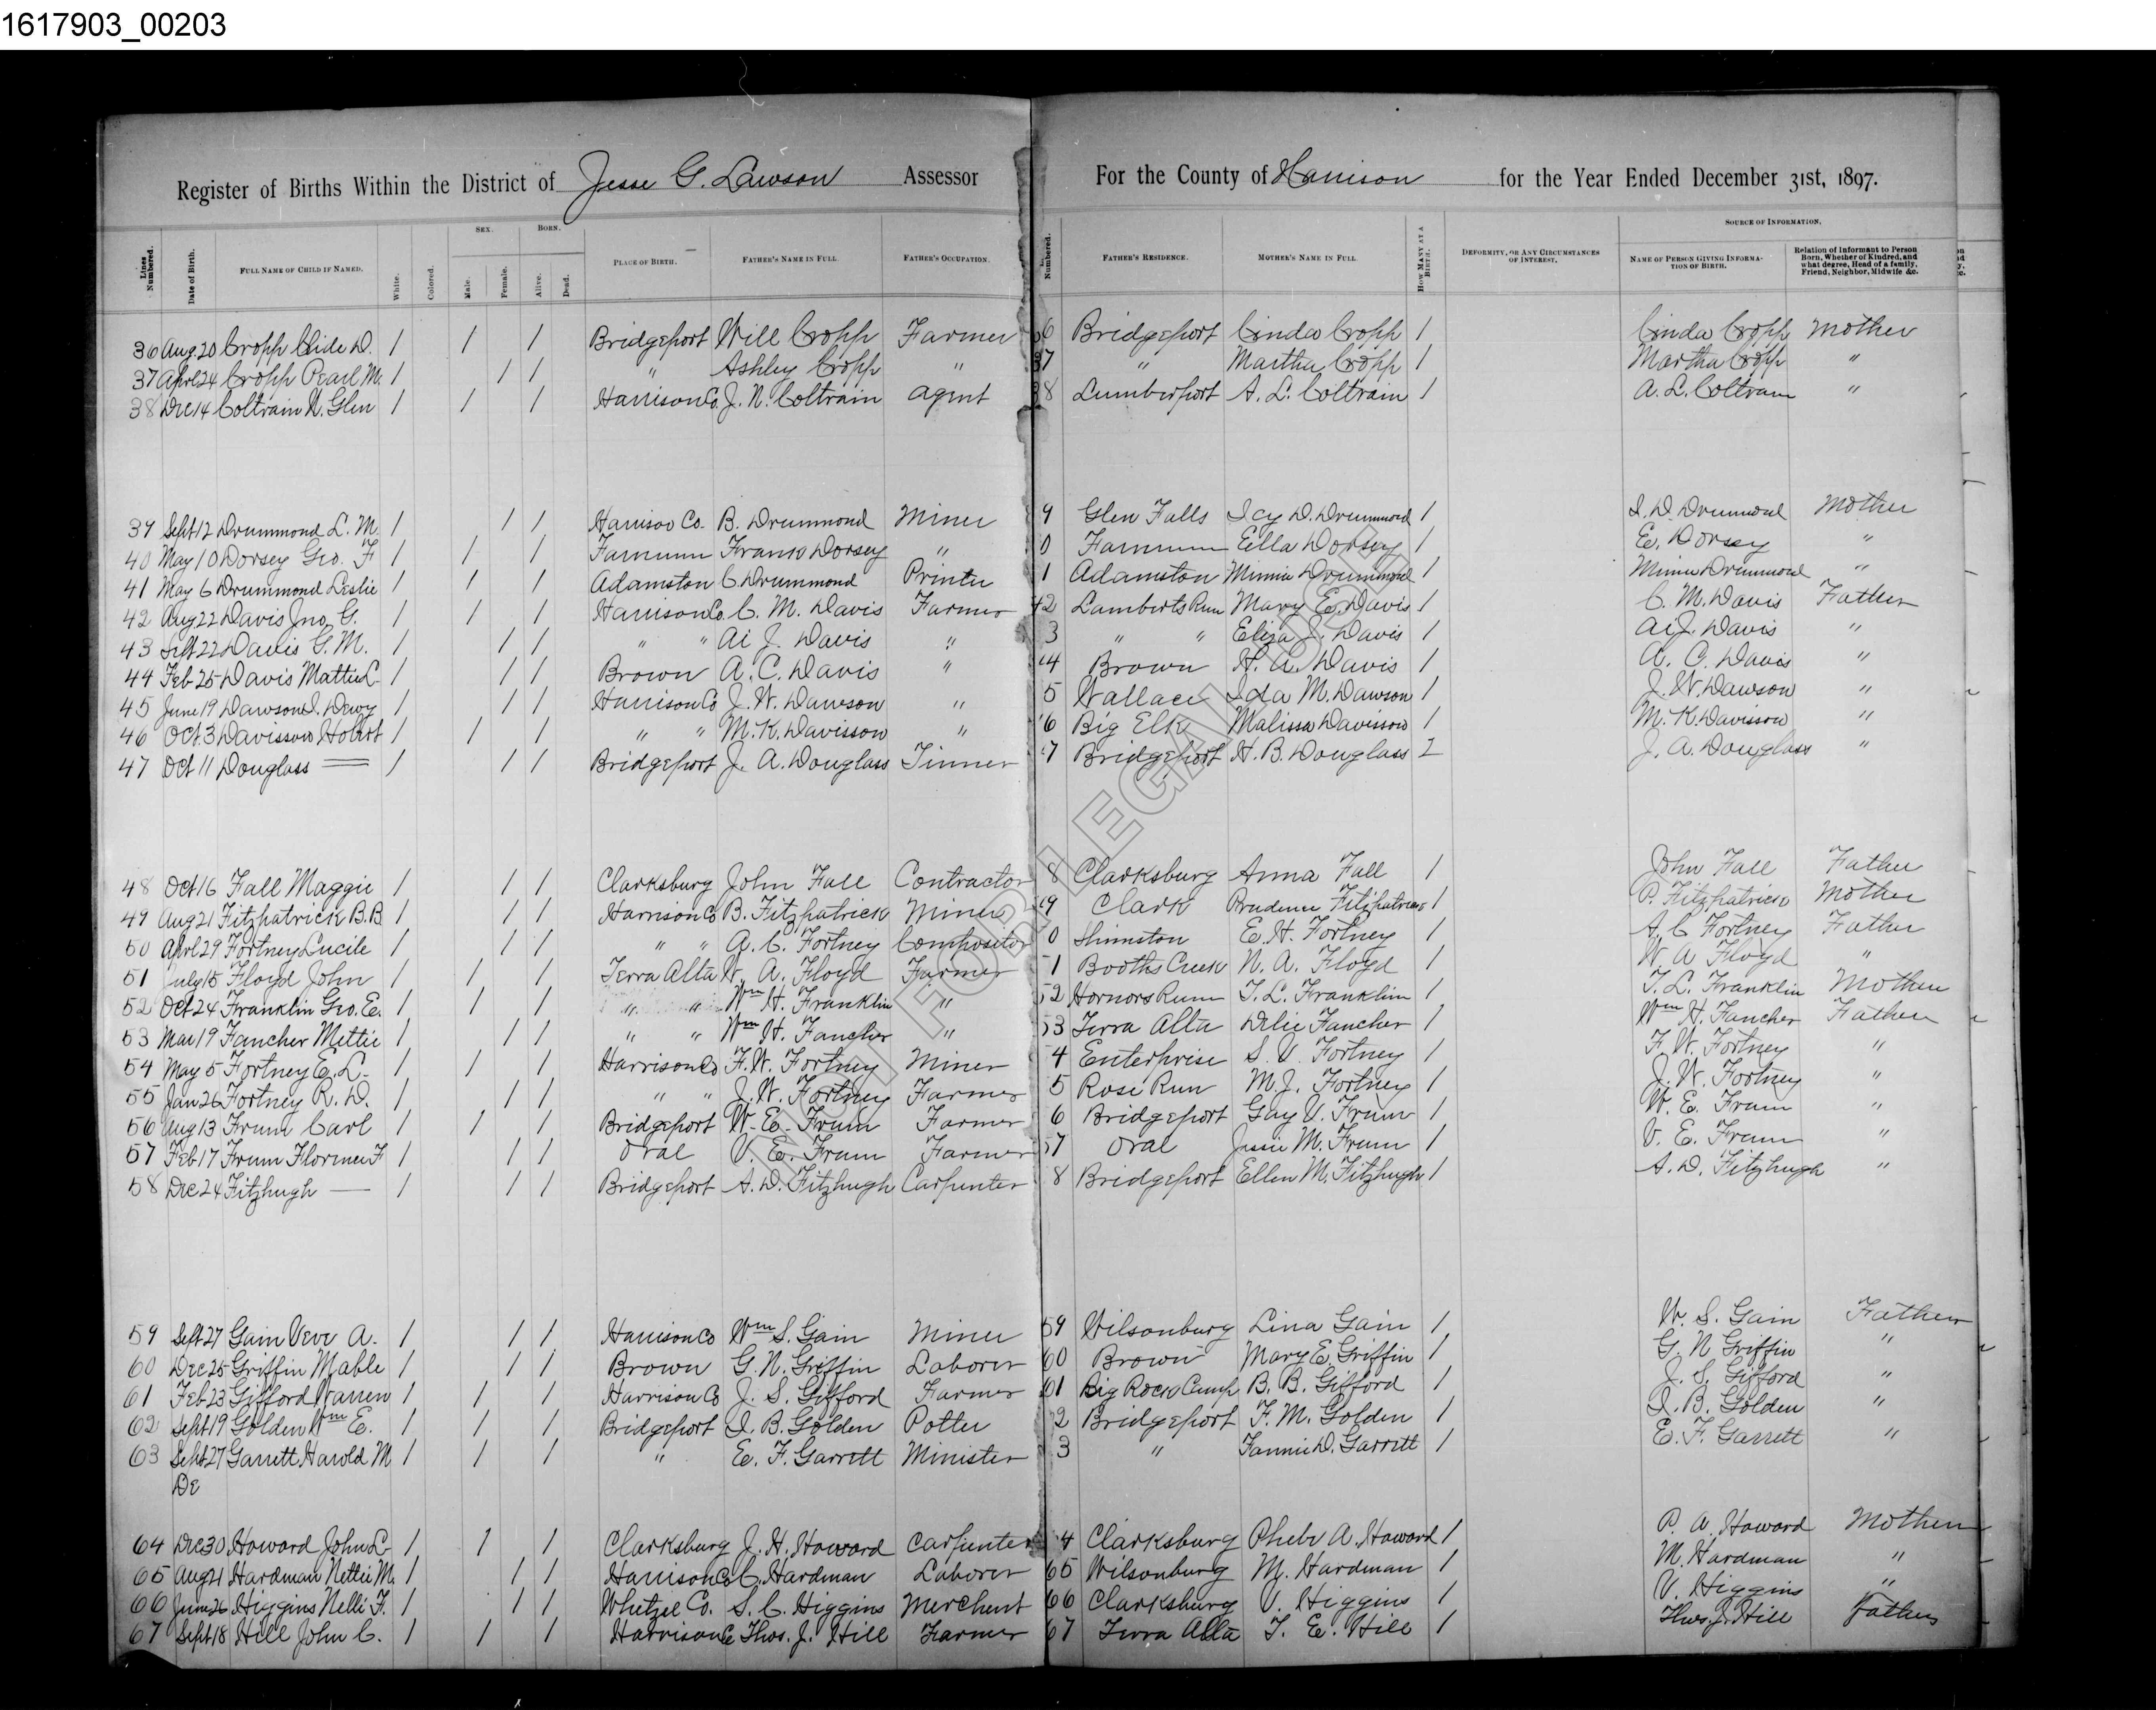 1617903_00203
Register of Births Within the District of Jesse G. Lawson Assessor For the County of Harrison for the Year Ended December 31st, 1897.
SEX. BORN. SOURCE OF INFORMATION.
Lines Numbered. Date of Birth. FULL NAME OF CHILD IF NAMED. White. Colored. Male. Female. Alive. Dead. PLACE OF BIRTH. FATHER'S NAME IN FULL. FATHER'S OCCUPATION. Numbered. FATHER'S RESIDENCE. MOTHER'S NAME IN FULL HOW MANY AT A BIRTH. DEFORMITY, OR ANY CIRCUMSTANCES OF INTEREST. NAME OF PERSON GIVING INFORMATION OF BIRTH. Relation of Informant to Person Born, Whether of Kindred, and what degree, Head of a family, Friend, Neighbor, Midwife &c.
36 Aug 20 Cropp Clide D. 1 1 1 Bridgeport Will Cropp Farmer 6 Bridgeport Cinda Cropp 1 Cinda Cropp Mother
37 Aprl 24 Cropp Pearl M. 1 1 1 " Ashley Cropp " 37 " Martha Cropp 1 Martha Cropp "
38 Dec 14 Coltrain N. Glen 1 1 1 Harrison Co. J. N. Coltrain Agent 38 Lumberport A. L. Coltrain 1 A. L. Coltrain "
39 Sept 12 Drummond L. M. 1 1 1 Harrison Co. B. Drummond Miner 9 Glen Falls Icy D. Drummond 1 I. D. Drummond Mother
40 May 10 Dorsey Geo. F 1 1 1 Farnum Frank Dorsey " 0 Farnum Ella Dorsey 1 E. Dorsey "
41 May 6 Drummond Leslie 1 1 1 Adamston C Drummond Printer 1 Adamston Minnie Drummond 1 Minnie Drummond "
42 Aug 22 Davis Jno. G. 1 1 1 Harrison Co. C. M. Davis Farmer 42 Lamberts Run Mary E. Davis 1 C. M. Davis Father
43 Sept 22 Davis G. M. 1 1 1 " " Ai J. Davis " 3 " " Eliza J. Davis 1 Ai J. Davis "
44 Feb 25 Davis Mattie L 1 1 1 Brown A. C. Davis " 4 Brown H. A. Davis 1 A. C. Davis "
45 June 19 Dawson I. Dewy 1 1 1 Harrison Co J. W. Dawson " 5 Wallace Ida M. Dawson 1 J. W. Dawson "
46 Oct. 3 Davisson Hobrt 1 1 1 " " M. K. Davisson " 6 Big Elk Malissa Davisson 1 M. K. Davisson "
47 Oct 11 Douglass 1 1 1 Bridgeport J. A. Douglass Tinner 7 Bridgeport H. B. Douglass 1 J. A. Douglass "
48 Oct 16 Fall Maggie 1 1 1 Clarksburg John Fall Contractor 8 Clarksburg Anna Fall 1 John Fall Father
49 Aug 21 Fitzpatrick B. B 1 1 1 Harrison Co B. Fitzpatrick Miner 9 Clark Prudence Fitzpatrick 1 P. Fitzpatrick Mother
50 Aprl 29 Fortney Lucile 1 1 1 " " A. C. Fortney Compositor 0 Shinnston E. H. Fortney 1 A. C Fortney Father
51 July 15 Floyd John 1 1 1 Terra Alta W. A. Floyd Farmer 1 Booths Creek N. A. Floyd 1 W. A Floyd "
52 Oct 24 Franklin Geo. E. 1 1 1 " " Wm H. Franklin " 52 Hornors Runn T. L. Franklin 1 T. L. Franklin Mother
53 Mar 19 Fancher Mettie 1 1 1 " " Wm H. Fancher " 53 Terra Alta Delie Fancher 1 Wm H. Fancher Father
54 May 5 Fortney E. L. 1 1 1 Harrison Co F. W. Fortney Miner 4 Enterprise S. V. Fortney 1 F. W. Fortney "
55 Jan 26 Fortney R. D. 1 1 1 " " J. W. Fortney Farmer 5 Rose Run M. J. Fortney 1 J. W. Fortney "
56 Aug 13 Frum Carl 1 1 1 Bridgeport W. E. Frum Farmer 6 Bridgeport Gay V. Frum 1 W. E. Frum "
57 Feb 17 Frum Florence F 1 1 1 Oral V. E. Frum Farmer 57 Oral Jessie M. Frum 1 V. E. Frum "
58 Dec 24 Fitzhugh — 1 1 1 Bridgeport A. D. Fitzhugh Carpenter 8 Bridgeport Ellen M. Fitzhugh 1 A. D. Fitzhugh "
59 Sept 27 Gain Veve A. 1 1 1 Harrison Co Wm S. Gain Miner 59 Wilsonburg Lina Gain 1 W. S. Gain Father
60 Dec 25 Griffin Mable 1 1 1 Brown G. N. Griffin Laborer 60 Brown Mary E. Griffin 1 G. N Griffin "
61 Feb 23 Gifford Warren 1 1 1 Harrison Co J. S. Gifford Farmer 61 Big Rock Camp B. B. Gifford 1 J. S. Gifford "
62 Sept 19 Golden Wm E. 1 1 1 Bridgeport I. B. Golden Potter 2 Bridgeport F. M. Golden 1 I. B. Golden "
63 Sept 27 Garrett Harold M 1 1 1 " E. F. Garrett Minister 3 " Fannie D. Garrett 1 E. F. Garrett "
De
64 Dec 30 Howard John L 1 1 1 Clarksburg J. H. Howard Carpenter 4 Clarksburg Phebe A. Howard 1 P. A. Howard Mother
65 Aug 21 Hardman Nettie M. 1 1 1 Harrison Co C. Hardman Laborer 65 Wilsonburg M. Hardman 1 M. Hardman "
66 June 26 Higgins Nelli F. 1 1 1 Whetzel Co. S. C. Higgins Merchent 66 Clarksburg V. Higgins 1 V. Higgins "
67 Sept 18 Hill John C. 1 1 1 Harrison Co Thos. J. Hill Farmer 67 Terra Alta T. E. Hill 1 Thos. J. Hill Father
NOT FOR LEGAL USE